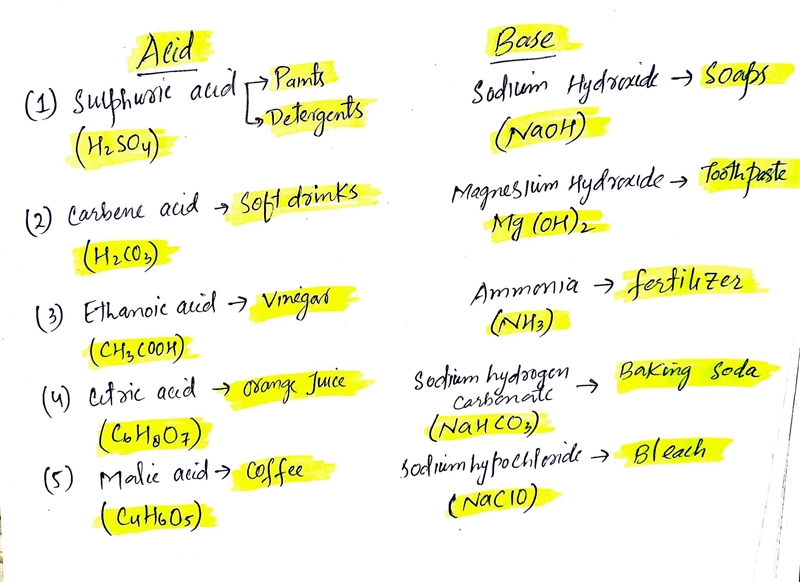 Acid
(1) Sulphuric acid → Paints
→ Detergents
(H2SO4)
(2) Carbene acid → Soft drinks
(H2CO3)
(3) Ethanoic acid → Vinegar
(CH3COOH)
(4) Citric acid → Orange Juice
(C6H8O7)
(5) Malic acid → Coffee
(C4H6O5)
Base
Sodium Hydroxide → Soaps
(NaOH)
Magnesium Hydroxide → Toothpaste
Mg(OH)2
Ammonia → fertilizer
(NH3)
Sodium hydrogen
carbonate → Baking Soda
(NaHCO3)
Sodium hypochloride → Bleach
(NaClO)